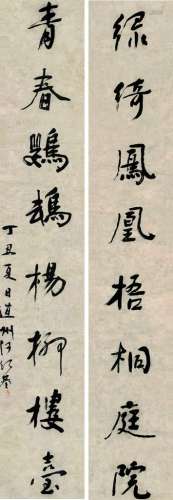 绿绮鳳凰梧桐庭院
青春鸚鵡楊柳樓臺
丁丑夏日道州何紹基